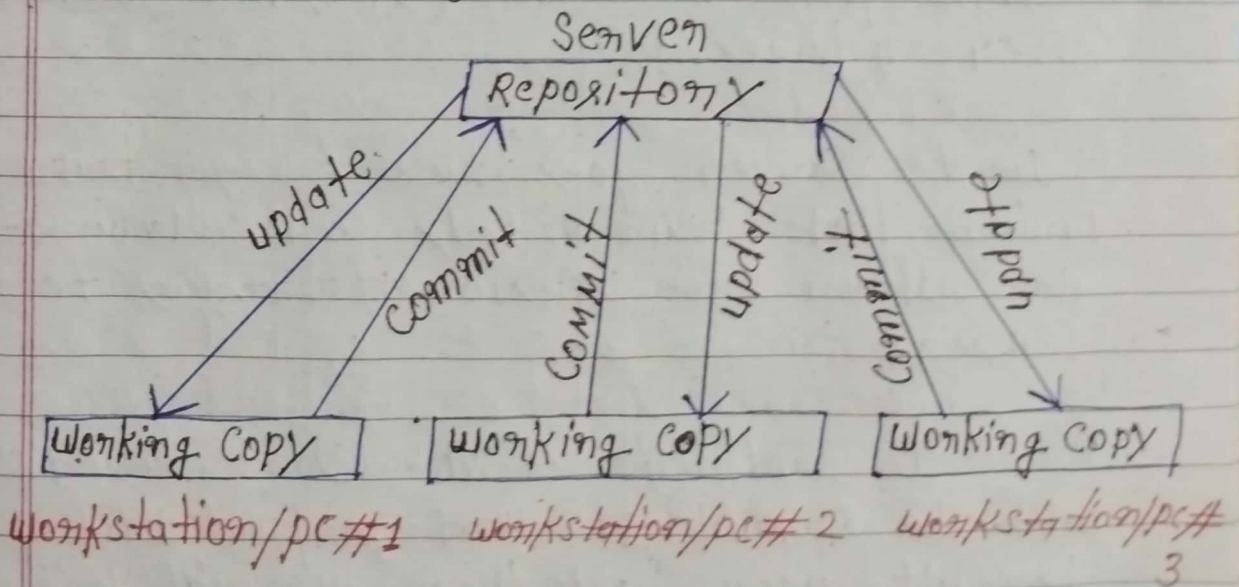 Server
Repository
update
commit
commit
update
commit
update
working copy
working copy
working copy
workstation/pc#1
workstation/pc#2
workstation/pc#
3